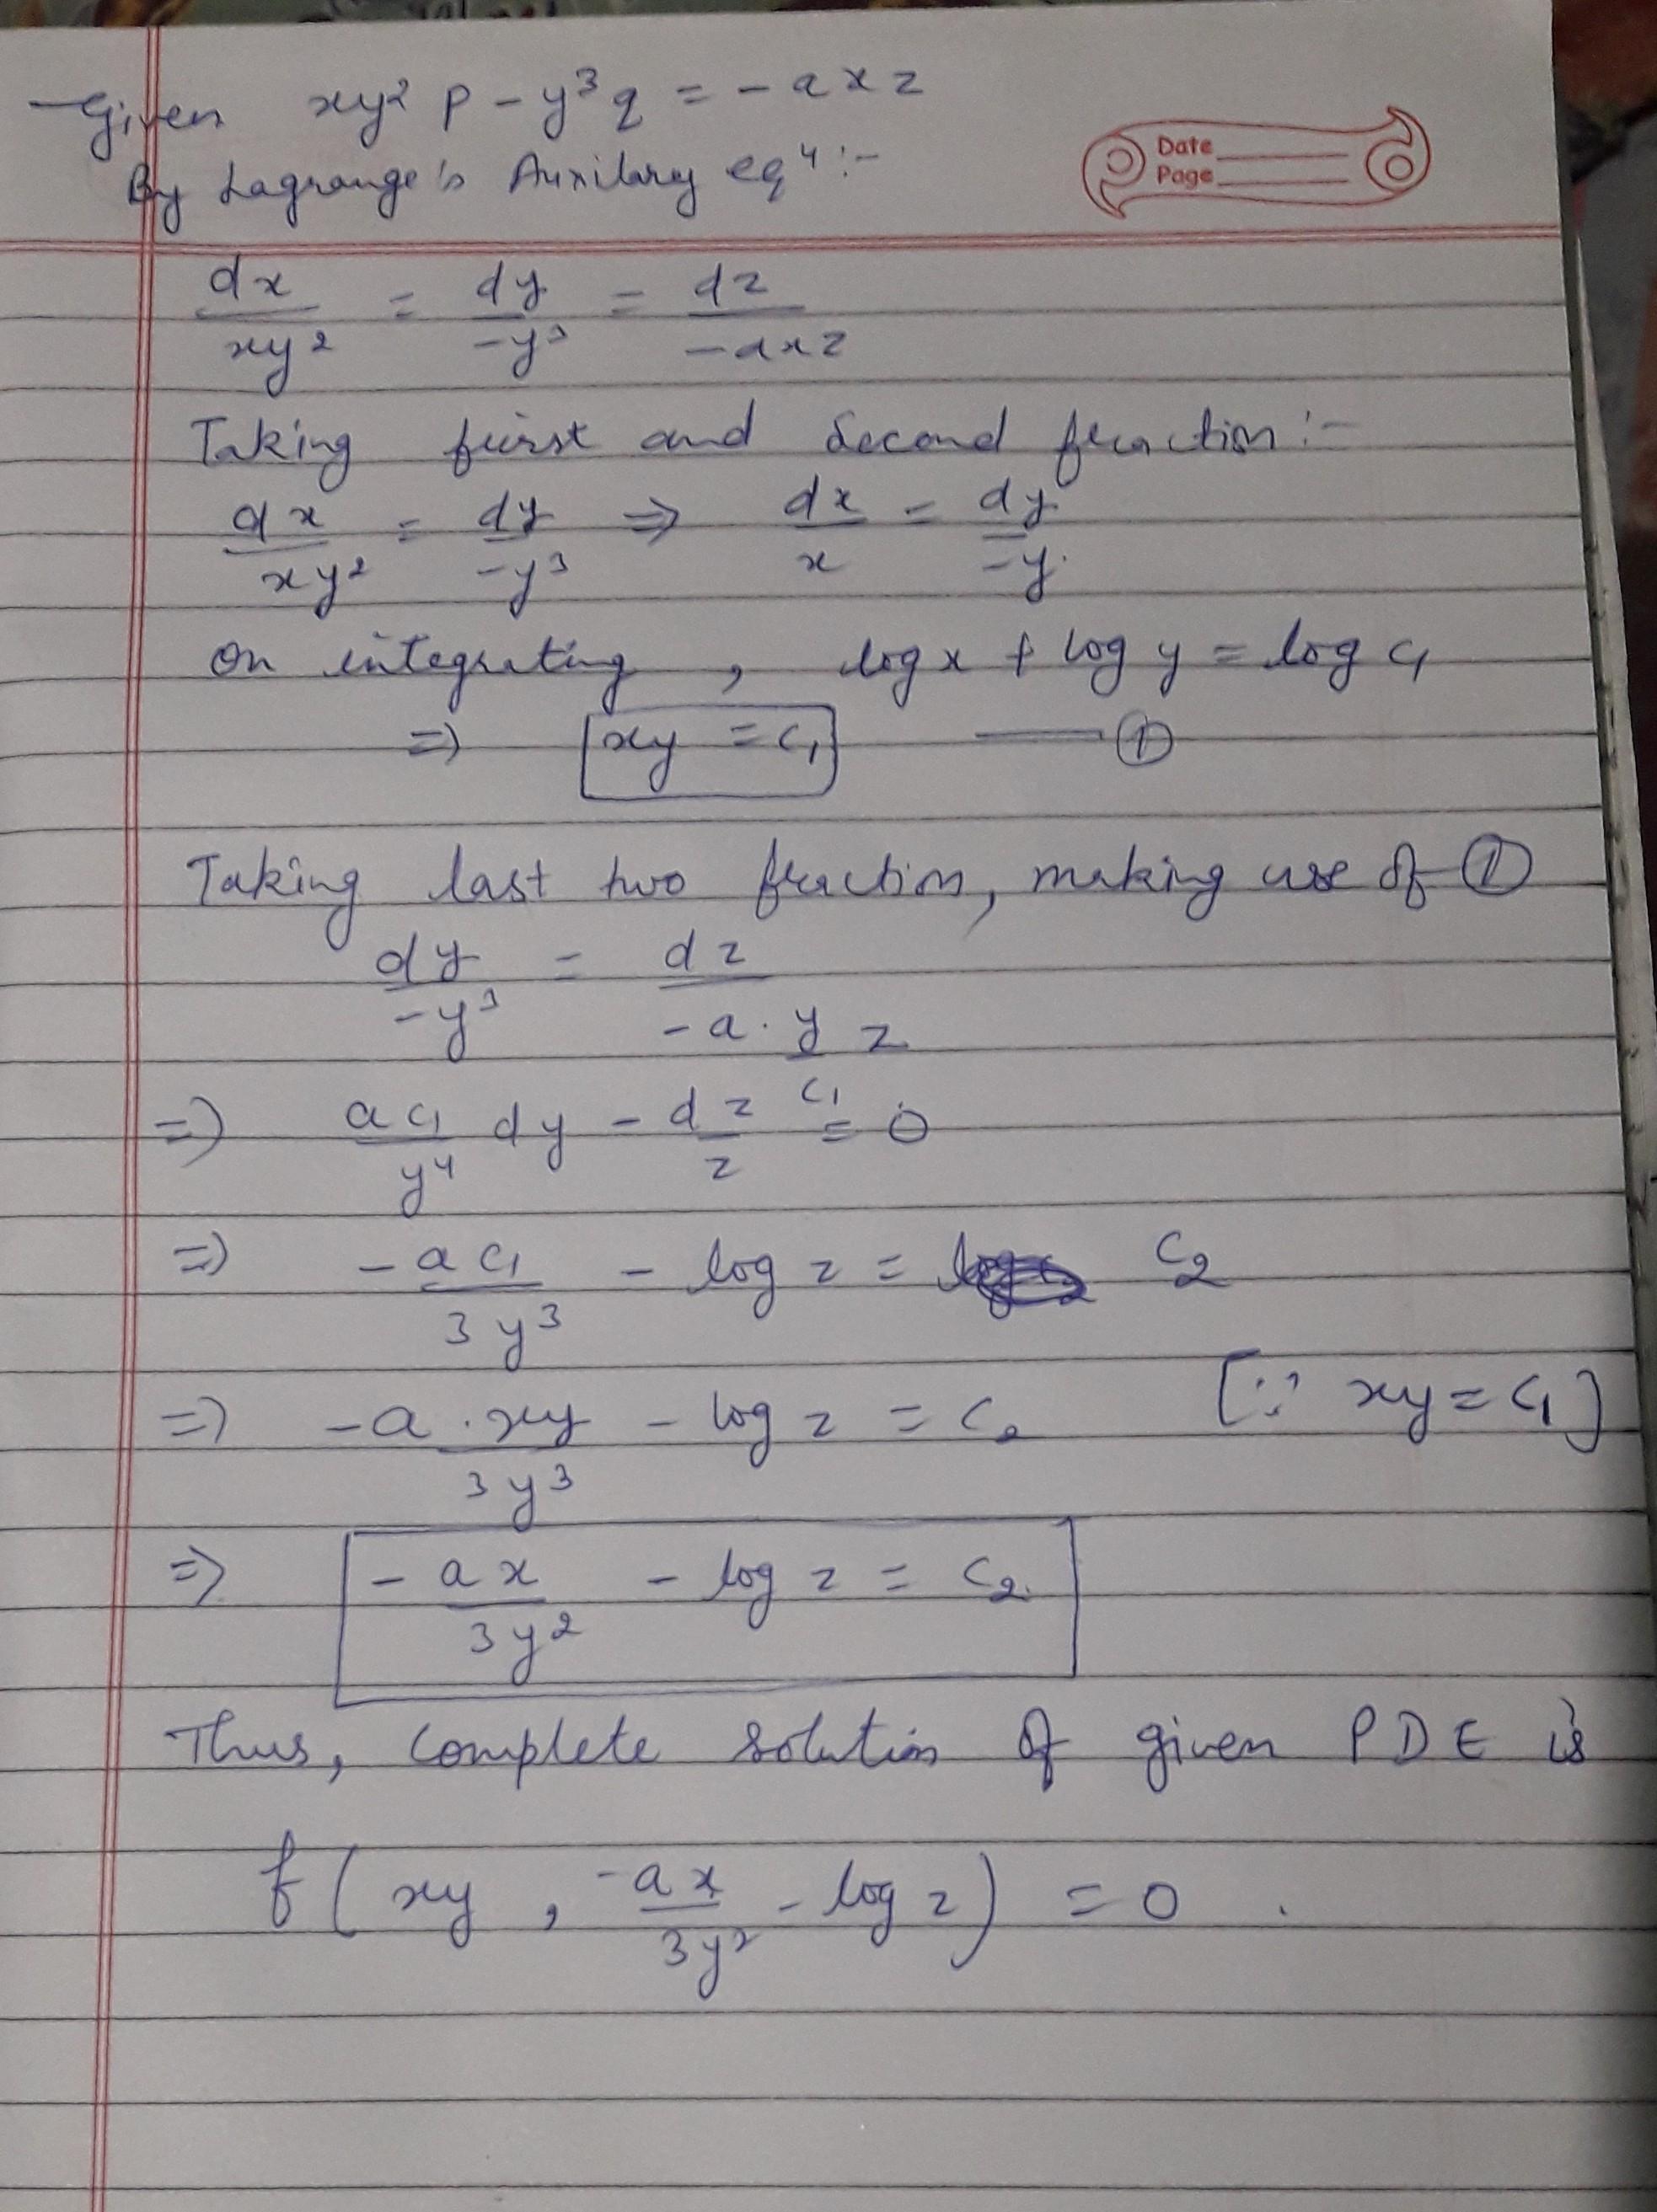 Given xy² p - y³ q = - a x z
By Lagrange's Auxilary eqⁿ :-
Date
Page
dx/xy² = dy/-y³ = dz/-axz
Taking first and second fraction :-
dx/xy² = dy/-y³ ⇒ dx/x = dy/-y.
On integrating , log x + log y = log c₁
⇒ xy = c₁ —— ①
Taking last two fraction, making use of ①
dy/-y³ = dz/(-a · y/c₁ z)
⇒ ac₁/y⁴ dy - dz/z = 0
⇒ -ac₁/3y³ - log z = c₂
⇒ -a · xy/3y³ - log z = c₂ [∵ xy = c₁]
⇒ -ax/3y² - log z = c₂.
Thus, complete solution of given PDE is
f( xy , -ax/3y² - log z ) = 0 .